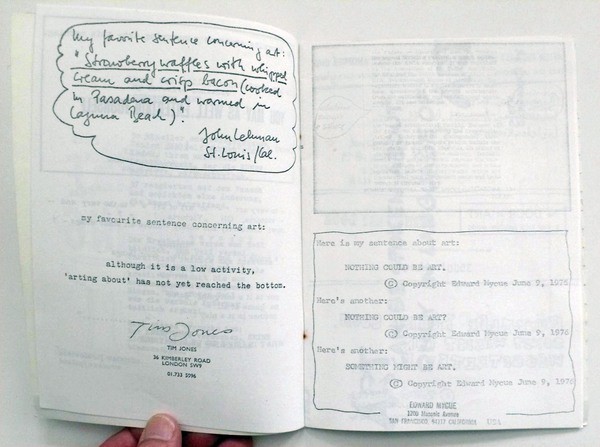 my favorite sentence concerning art:
"Strawberry waffles with whipped
cream and crisp bacon (cooked
in Pasadena and warmed in
Laguna Beach)".
John Lehman
St. Louis/Cal.
my favourite sentence concerning art:
although it is a low activity,
'arting about' has not yet reached the bottom.
Tim Jones
TIM JONES
36 KIMBERLEY ROAD
LONDON SW9
01.733 2096
Here is my sentence about art:
NOTHING COULD BE ART.
© Copyright Edward Mycue June 9, 1976
Here's another:
NOTHING COULD BE ART?
© Copyright Edward Mycue June 9, 1976
Here's another:
SOMETHING MIGHT BE ART.
© Copyright Edward Mycue June 9, 1976
EDWARD MYCUE
Masonic Avenue
SAN FRANCISCO 94117 CALIFORNIA USA